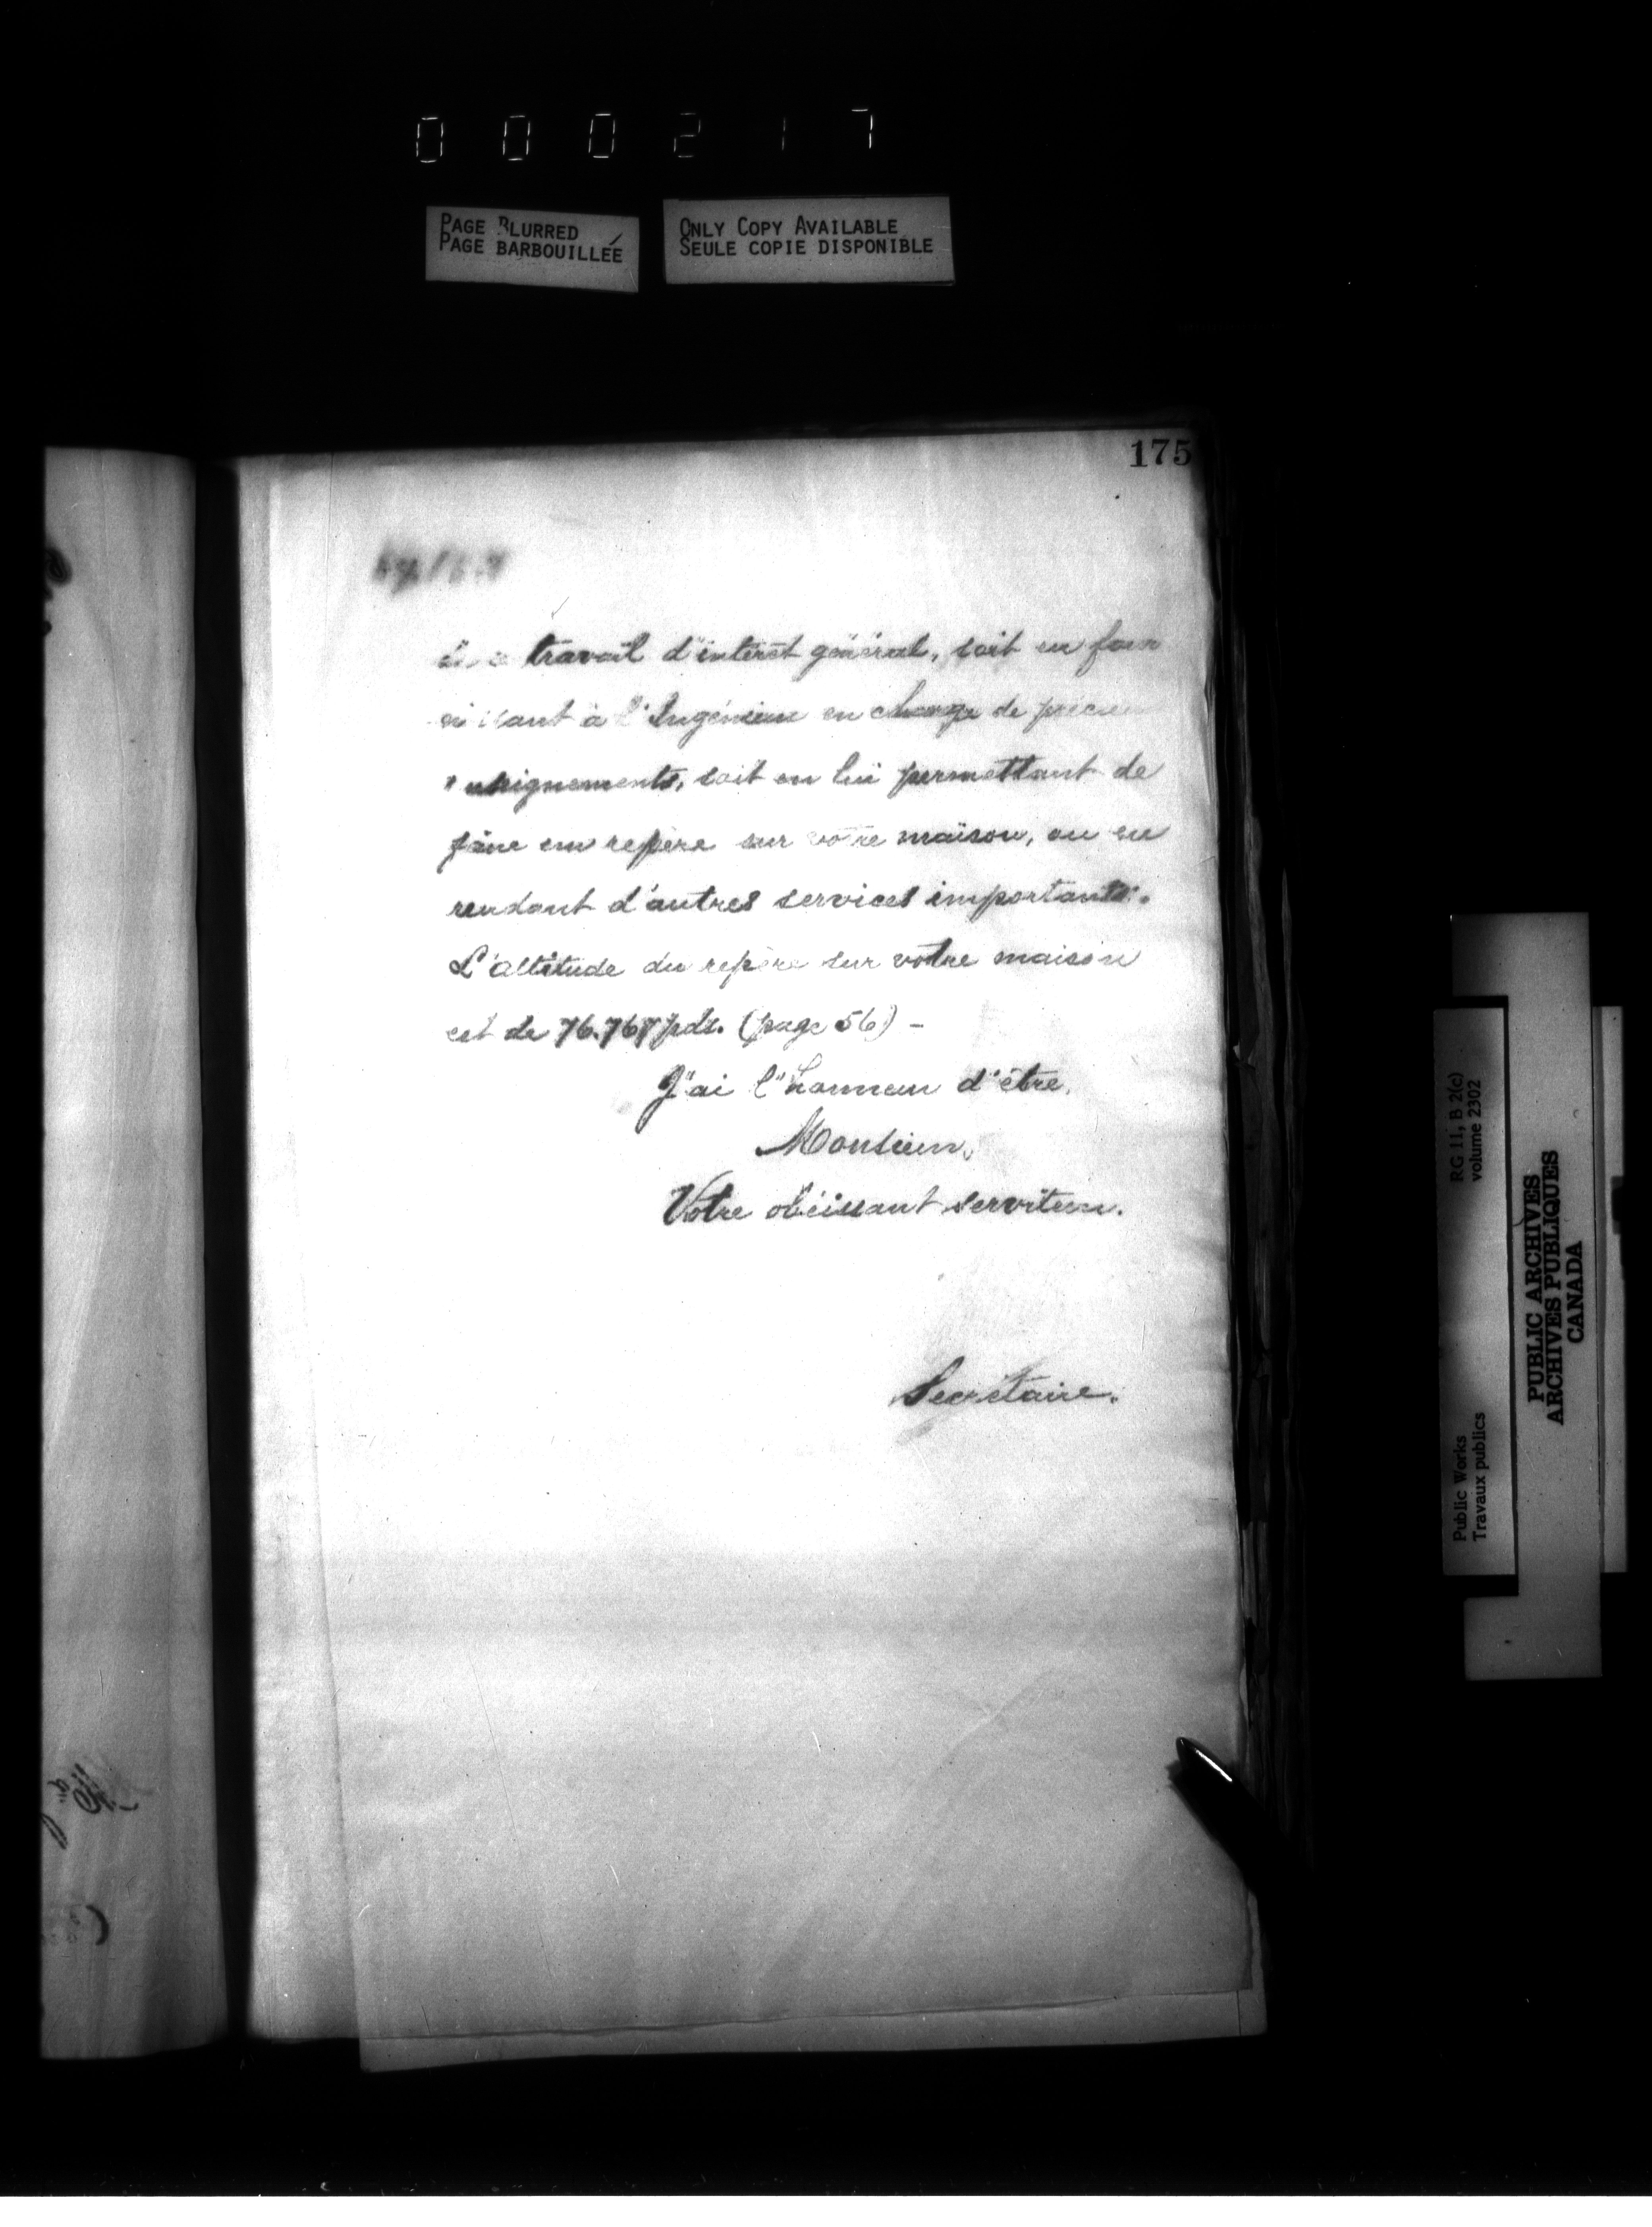 000217
PAGE BLURRED
PAGE BARBOUILLÉE
ONLY COPY AVAILABLE
SEULE COPIE DISPONIBLE
175
travail d'intérêt général, soit en four
nissant à l'Ingénieur en charge de précieux
renseignements, soit en lui permettant de
faire un repère sur votre maison, ou en
rendant d'autres services importants.
L'altitude du repère sur votre maison
est de 76.767 pds. (page 56) -
J'ai l'honneur d'être,
Monsieur,
Votre obéissant serviteur.
Secrétaire.
RG 11, B 2(c)
volume 2302
Public Works
Travaux publics
PUBLIC ARCHIVES
ARCHIVES PUBLIQUES
CANADA